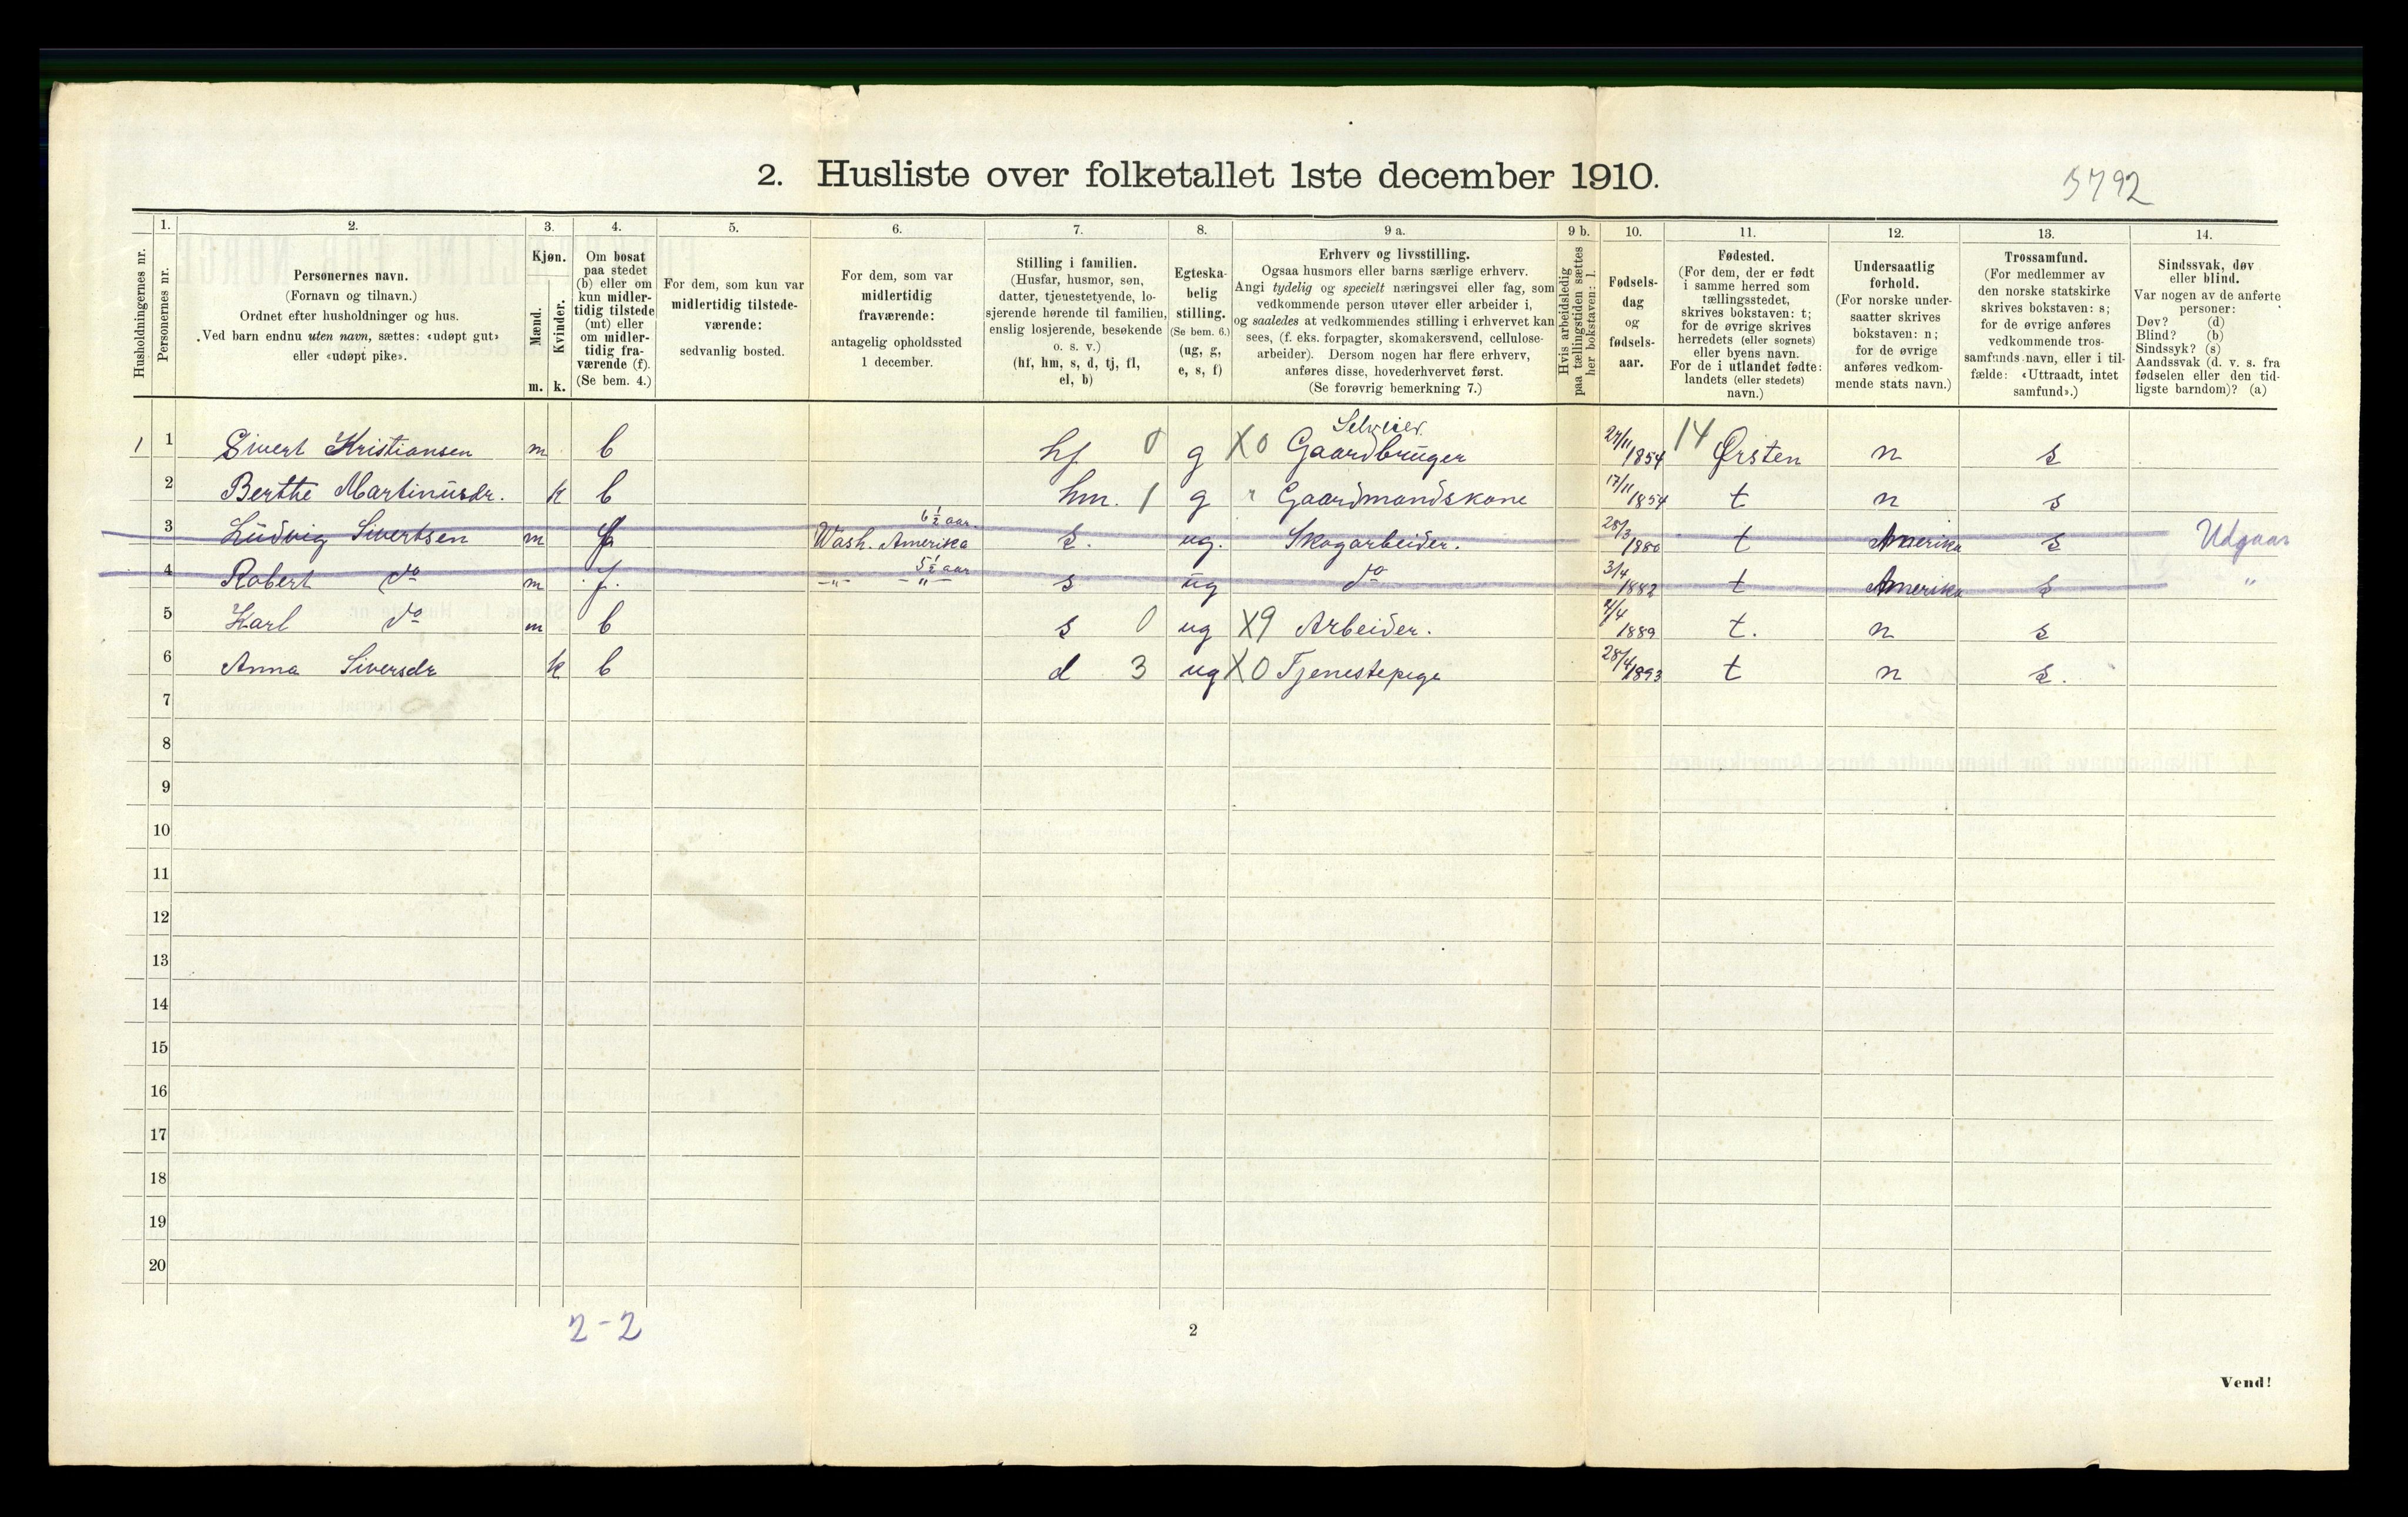 2. Husliste over folketallet 1ste december 1910.
5792
Husholdningernes nr.
1.
Personernes nr.
2.
Personernes navn.
(Fornavn og tilnavn.)
Ordnet efter husholdninger og hus.
Ved barn endnu uten navn, sættes: «udøpt gut»
eller «udøpt pike».
3.
Kjøn.
Mænd.
Kvinder.
m. k.
4.
Om bosat
paa stedet
(b) eller om
kun midler-
tidig tilstede
(mt) eller
om midler-
tidig fra-
værende (f).
(Se bem. 4.)
5.
For dem, som kun var
midlertidig tilstede-
værende:
sedvanlig bosted.
6.
For dem, som var
midlertidig
fraværende:
antagelig opholdssted
1 december.
7.
Stilling i familien.
(Husfar, husmor, søn,
datter, tjenestetyende, lo-
sjerende hørende til familien,
enslig losjerende, besøkende
o. s. v.)
(hf, hm, s, d, tj, fl,
el, b)
8.
Egteska-
belig
stilling.
(Se bem. 6.)
(ug, g,
e, s, f)
9 a.
Erhverv og livsstilling.
Ogsaa husmors eller barns særlige erhverv.
Angi tydelig og specielt næringsvei eller fag, som
vedkommende person utøver eller arbeider i,
og saaledes at vedkommendes stilling i erhvervet kan
sees, (f. eks. forpagter, skomakersvend, cellulose-
arbeider). Dersom nogen har flere erhverv,
anføres disse, hovederhvervet først.
(Se forøvrig bemerkning 7.)
9 b.
Hvis arbeidsledig
paa tællingstiden sættes
her bokstaven: l.
10.
Fødsels-
dag
og
fødsels-
aar.
11.
Fødested.
(For dem, der er født
i samme herred som
tællingsstedet,
skrives bokstaven: t;
for de øvrige skrives
herredets (eller sognets)
eller byens navn.
For de i utlandet fødte:
landets (eller stedets)
navn.)
12.
Undersaatlig
forhold.
(For norske under-
saatter skrives
bokstaven: n;
for de øvrige
anføres vedkom-
mende stats navn.)
13.
Trossamfund.
(For medlemmer av
den norske statskirke
skrives bokstaven: s;
for de øvrige anføres
vedkommende tros-
samfunds navn, eller i til-
fælde: «Uttraadt, intet
samfund».)
14.
Sindssvak, døv
eller blind.
Var nogen av de anførte
personer:
Døv? (d)
Blind? (b)
Sindssyk? (s)
Aandssvak (d. v. s. fra
fødselen eller den tid-
ligste barndom)? (a)
Selveier
1 1 Sivert Kristiansen m b hf 0 g X0 Gaardbruger 27/11 1854 14 Ørsten n s
2 Berthe Martinusdr. k b hm. 1 g " Gaardmandskone 17/11 1854 t n s
6 1/2 aar
3 Ludvig Sivertsen m f Wash. Amerika s. ug. Skogarbeider. 28/3 1880 t Amerika s Udgaar
5 1/2 aar
4 Robert do m f. -"- -"- s ug do 3/4 1882 t Amerika s "
5 Karl do m b s 0 ug X9 Arbeider. 4/4 1889 t. n s
6 Anna Siversdr k b d 3 ug X0 Tjenestepige 28/4 1893 t n s.
7
8
9
10
11
12
13
14
15
16
17
18
19
20
2-2
2
Vend!